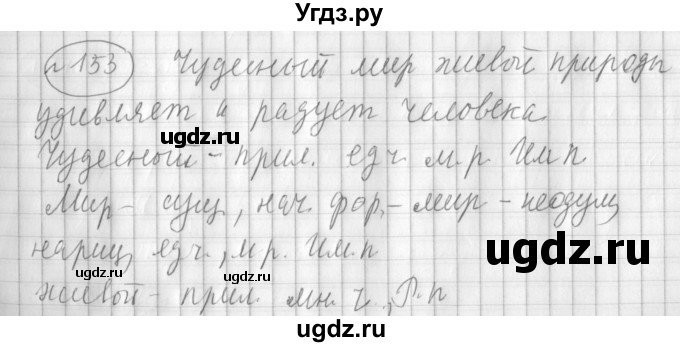 Угдз.ру
№ 153 Чудесный мир живой природы
удивляет и радует человека.
ugdz.ru ugdz.ru
Чудесный - прил. ед.ч. м.р. Им.п.
Мир - сущ, нач. фор. - мир - неодуш,
ugdz.ru
нариц, ед.ч., м.р. Им.п
ugdz.ru ugdz.ru
живой - прил. мн. ч., Р.п
ugdz.ru